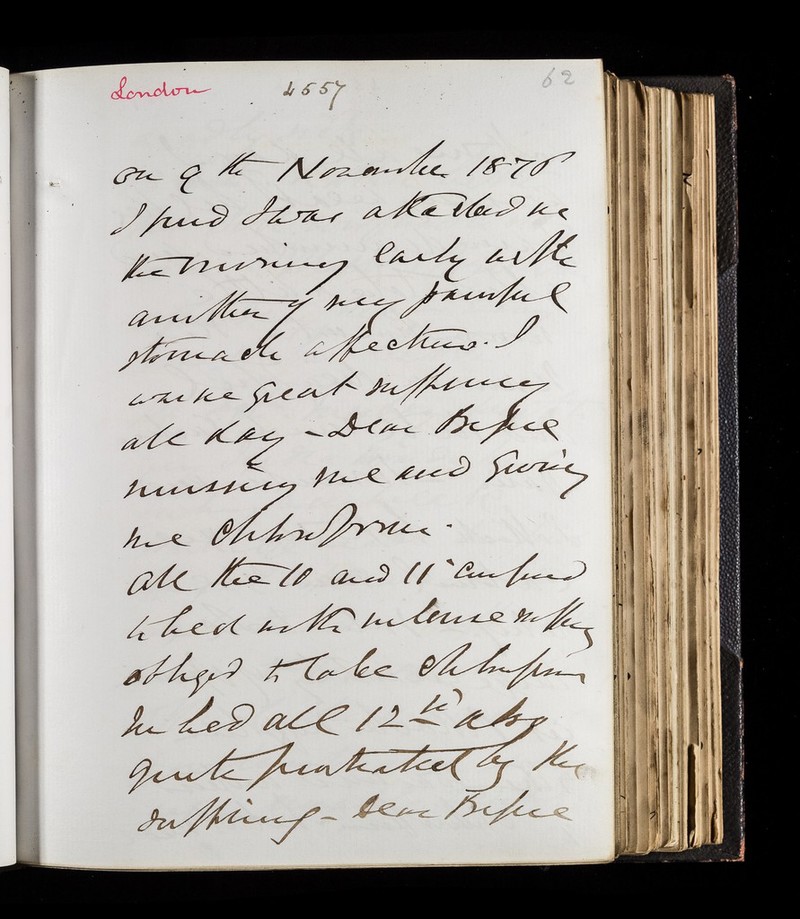 London 4557 62
on 9th November 1876
I find I was attacked in
the morning early with
another of my painful
stomach affections. I
was in great suffering
all day - Dear
nursing me and giving
me Chloroform.
All the 10 and 11 confined
to bed with intense suffering
obliged to take Chloroform
In bed all 12th also
quite prostrated by the
suffering - Dear